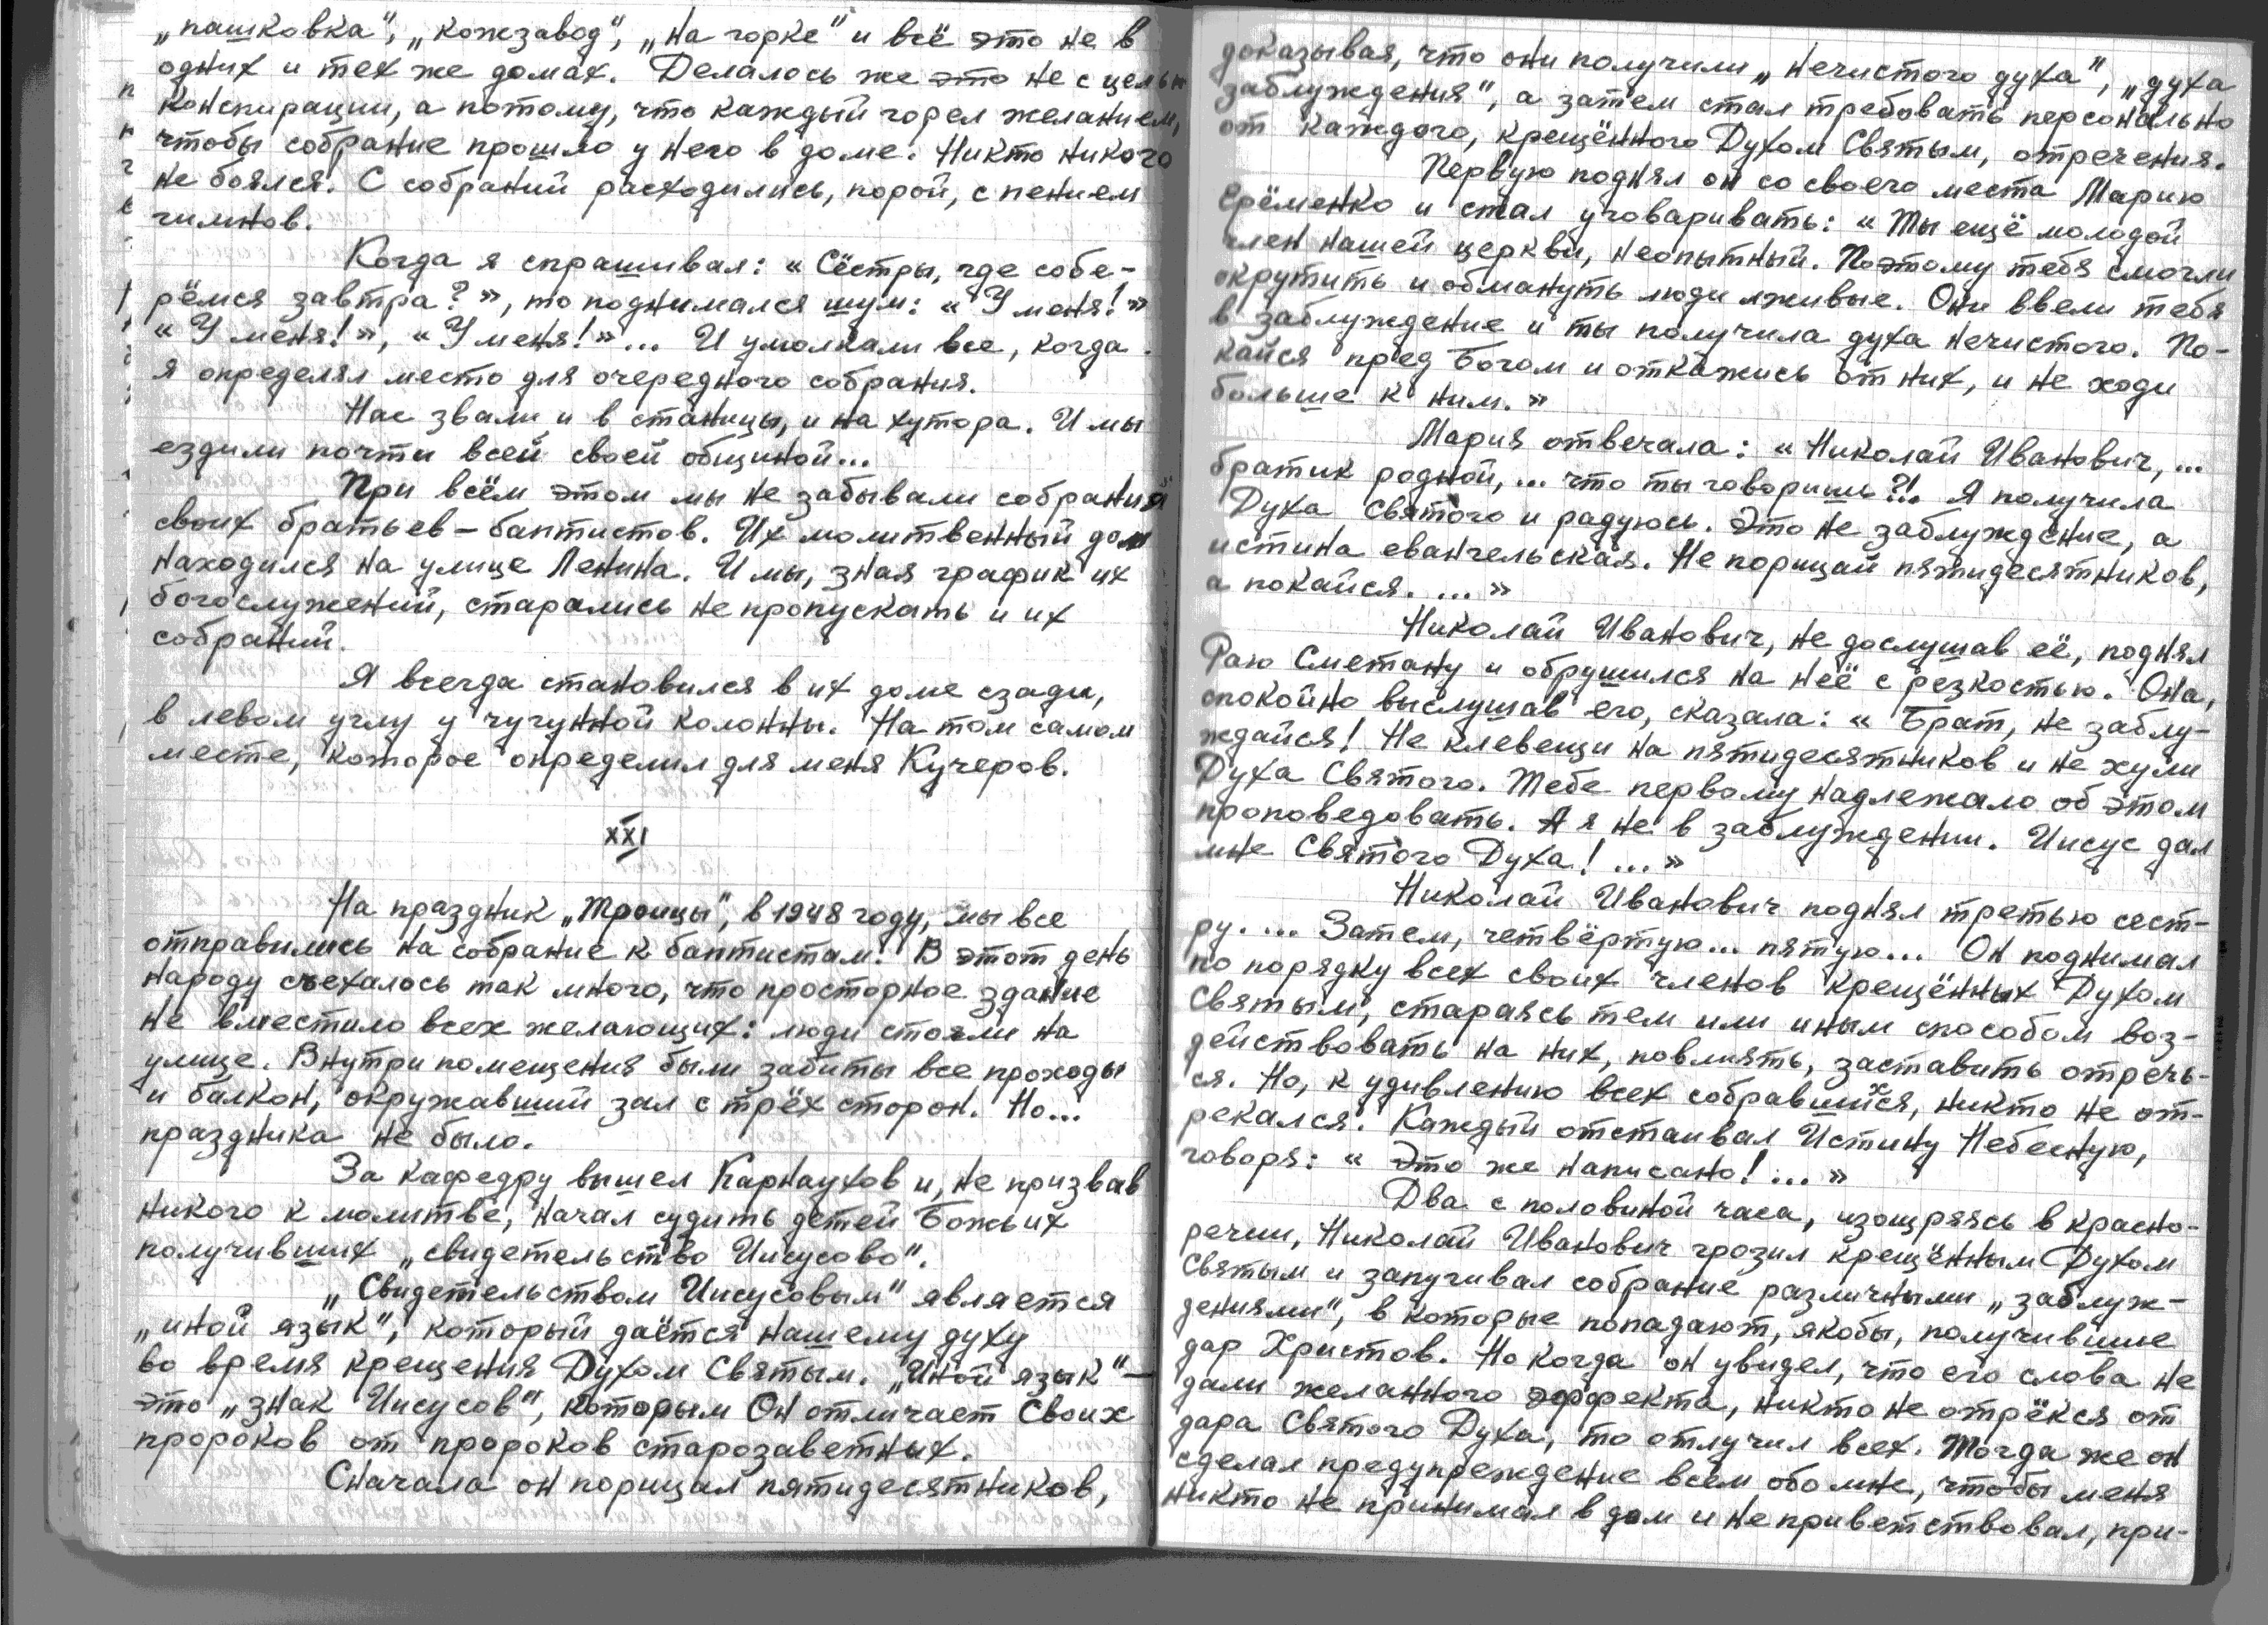 „пашковка“, „кожзавод“, „на горке“ и всё это не в
одних и тех же домах. Делалось же это не с целью
конспирации, а потому, что каждый горел желанием,
чтобы собрание прошло у него в доме. Никто никого
не боялся. С собраний расходились, порой, с пением
гимнов.
Когда я спрашивал: « Сёстры, где собе-
рёмся завтра? », то поднимался шум: « У меня! »
« У меня! », « У меня! »... И умолкали все, когда
я определял место для очередного собрания.
Нас звали и в станицы, и на хутора. И мы
ездили почти всей своей общиной...
При всём этом мы не забывали собраний
своих братьев – баптистов. Их молитвенный дом
находился на улице Ленина. И мы, зная график их
богослужений, старались не пропускать и их
собраний.
Я всегда становился в их доме сзади,
в левом углу у чугунной колонны. На том самом
месте, которое определил для меня Кучеров.
XXI
На праздник „Троицы“, в 1948 году, мы все
отправились на собрание к баптистам. В этот день
народу съехалось так много, что просторное здание
не вместило всех желающих: люди стояли на
улице. Внутри помещения были забиты все проходы
и балкон, окружавший зал с трёх сторон. Но...
праздника не было.
За кафедру вышел Карнаухов и, не призвав
никого к молитве, начал судить детей Божьих
получивших „свидетельство Иисусово“.
„Свидетельством Иисусовым“ является
„иной язык“, который даётся нашему духу
во время крещения Духом Святым. „Иной язык“ –
это „знак Иисусов“, которым Он отличает Своих
пророков от пророков старозаветных.
Сначала он порицал пятидесятников,
доказывая, что они получили „нечистого духа“, „духа
заблуждения“, а затем стал требовать персонально
от каждого, крещённого Духом Святым, отречения.
Первую поднял он со своего места Марию
Ерёменко и стал уговаривать: « Ты ещё молодой
член нашей церкви, неопытный. Поэтому тебя смогли
окрутить и обмануть люди лживые. Они ввели тебя
в заблуждение и ты получила духа нечистого. По-
кайся пред Богом и откажись от них, и не ходи
больше к ним. »
Мария отвечала: « Николай Иванович, ...
братик родной, ... что ты говоришь?!. Я получила
Духа Святого и радуюсь. Это не заблуждение, а
истина евангельская. Не порицай пятидесятников,
а покайся. ... »
Николай Иванович, не дослушав её, поднял
Раю Сметану и обрушился на неё с резкостью. Она,
спокойно выслушав его, сказала: « Брат, не заблу-
ждайся! Не клевещи на пятидесятников и не хули
Духа Святого. Тебе первому надлежало об этом
проповедовать. А я не в заблуждении. Иисус дал
мне Святого Духа! ... »
Николай Иванович поднял третью сест-
ру. ... Затем, четвёртую... пятую... Он поднимал
по порядку всех своих членов крещённых Духом
Святым, стараясь тем или иным способом воз-
действовать на них, повлиять, заставить отречь-
ся. Но, к удивлению всех собравшихся, никто не от-
рекался. Каждый отстаивал Истину Небесную,
говоря: « Это же написано! ... »
Два с половиной часа, изощряясь в красно-
речии, Николай Иванович грозил крещённым Духом
Святым и запугивал собрание различными „заблуж-
дениями“, в которые попадают, якобы, получившие
дар Христов. Но когда он увидел, что его слова не
дали желанного эффекта, никто не отрёкся от
дара Святого Духа, то отлучил всех. Тогда же он
сделал предупреждение всем обо мне, чтобы меня
никто не принимал в дом и не приветствовал, при-